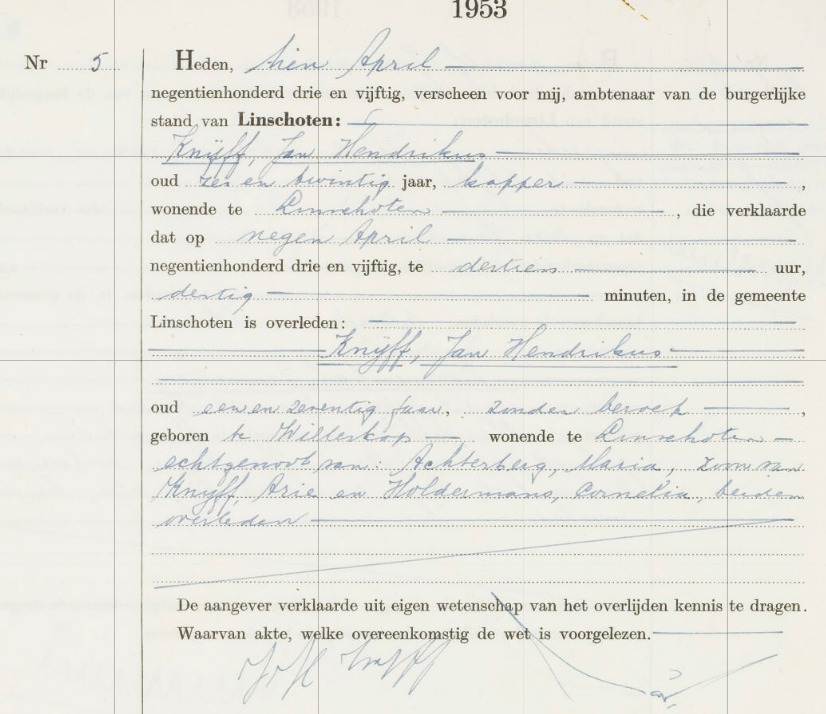 1953
Nr 5 Heden, tien April
negentienhonderd drie en vijftig, verscheen voor mij, ambtenaar van de burgerlijke
stand van Linschoten:
Knijff, Jan Hendrikus
oud zes en twintig jaar, kapper ,
wonende te Linschoten , die verklaarde
dat op negen April
negentienhonderd drie en vijftig, te dertien uur,
dertig minuten, in de gemeente
Linschoten is overleden:
Knijff, Jan Hendrikus
oud een en zeventig jaar, zonder beroep ,
geboren te Willeskop wonende te Linschoten
echtgenoot van: Achterberg, Maria, zoon van
Knijff, Arie en Holdermans, Cornelia, beiden
overleden
De aangever verklaarde uit eigen wetenschap van het overlijden kennis te dragen.
Waarvan akte, welke overeenkomstig de wet is voorgelezen.